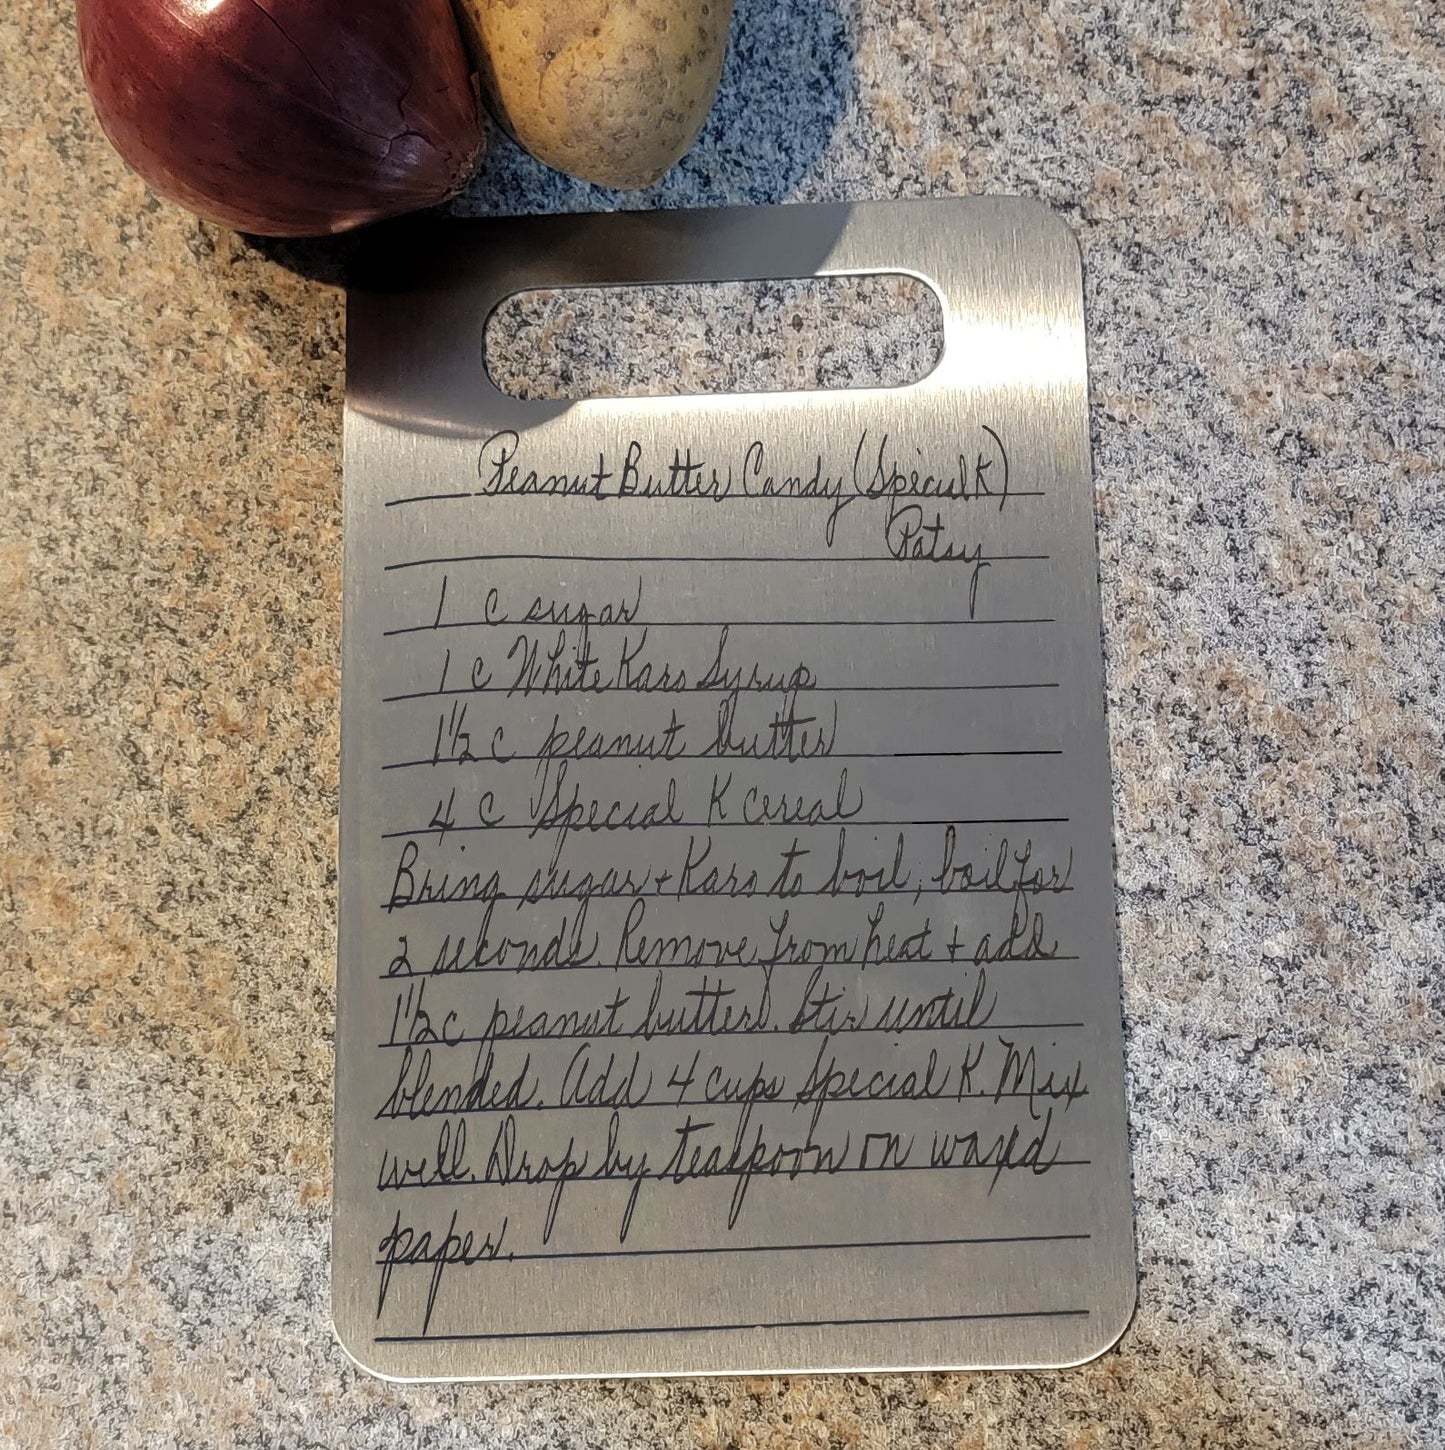 Peanut Butter Candy (Special K)
Patsy
1 c sugar
1 c White Karo Syrup
1 1/2 c peanut butter
4 c Special K cereal
Bring sugar + Karo to boil, boil for
2 seconds. Remove from heat + add
1 1/2 c peanut butter. Stir until
blended. Add 4 cups Special K. Mix
well. Drop by teaspoon on waxed
paper.